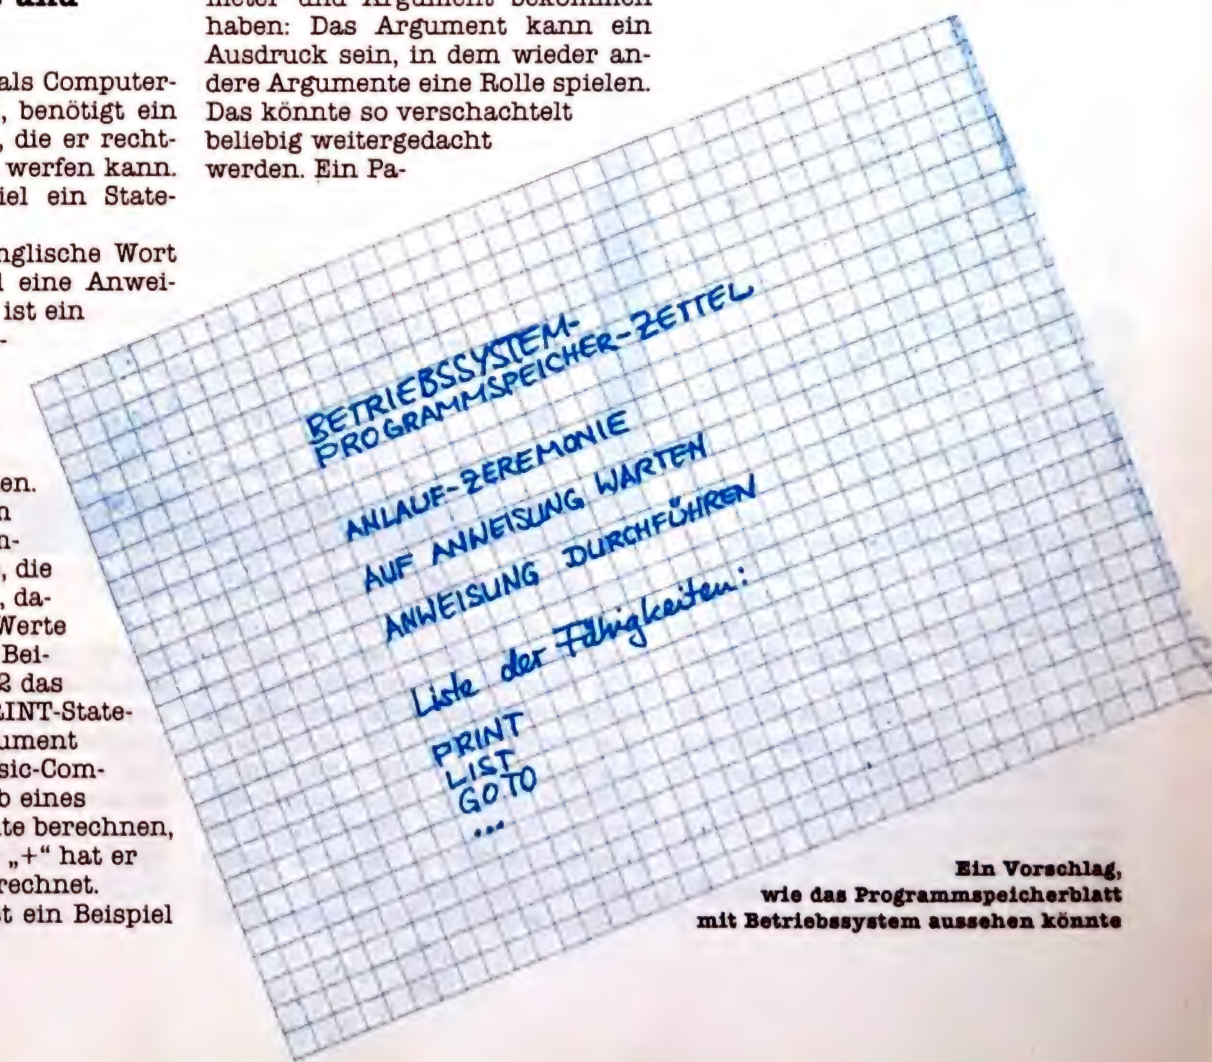 und
als Computer-
, benötigt ein
, die er recht-
werfen kann.
iel ein State-
nglische Wort
eine Anwei-
ist ein
-
en.
n
n-
, die
, da-
Werte
Bei-
2 das
RINT-State-
ument
sic-Com-
b eines
te berechnen,
„+“ hat er
rechnet.
t ein Beispiel
meter und Argument bekommen
haben: Das Argument kann ein
Ausdruck sein, in dem wieder an-
dere Argumente eine Rolle spielen.
Das könnte so verschachtelt
beliebig weitergedacht
werden. Ein Pa-
BETRIEBSSYSTEM-
PROGRAMMSPEICHER-ZETTEL
ANLAUF-ZEREMONIE
AUF ANWEISUNG WARTEN
ANWEISUNG DURCHFÜHREN
Liste der Fähigkeiten:
PRINT
LIST
GOTO
...
Ein Vorschlag,
wie das Programmspeicherblatt
mit Betriebssystem aussehen könnte